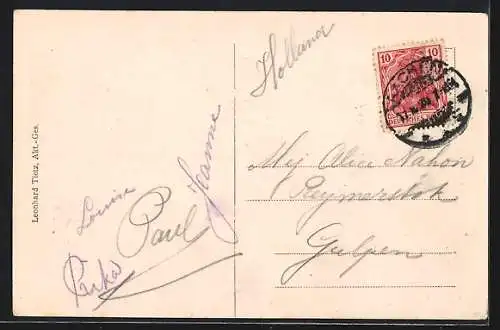 Leonhard Tietz, Akt.-Ges.
Louise
Paul
Jeanne
Holland
10 10
Mej Alice Nahon
Reijmerstok
Gulpen